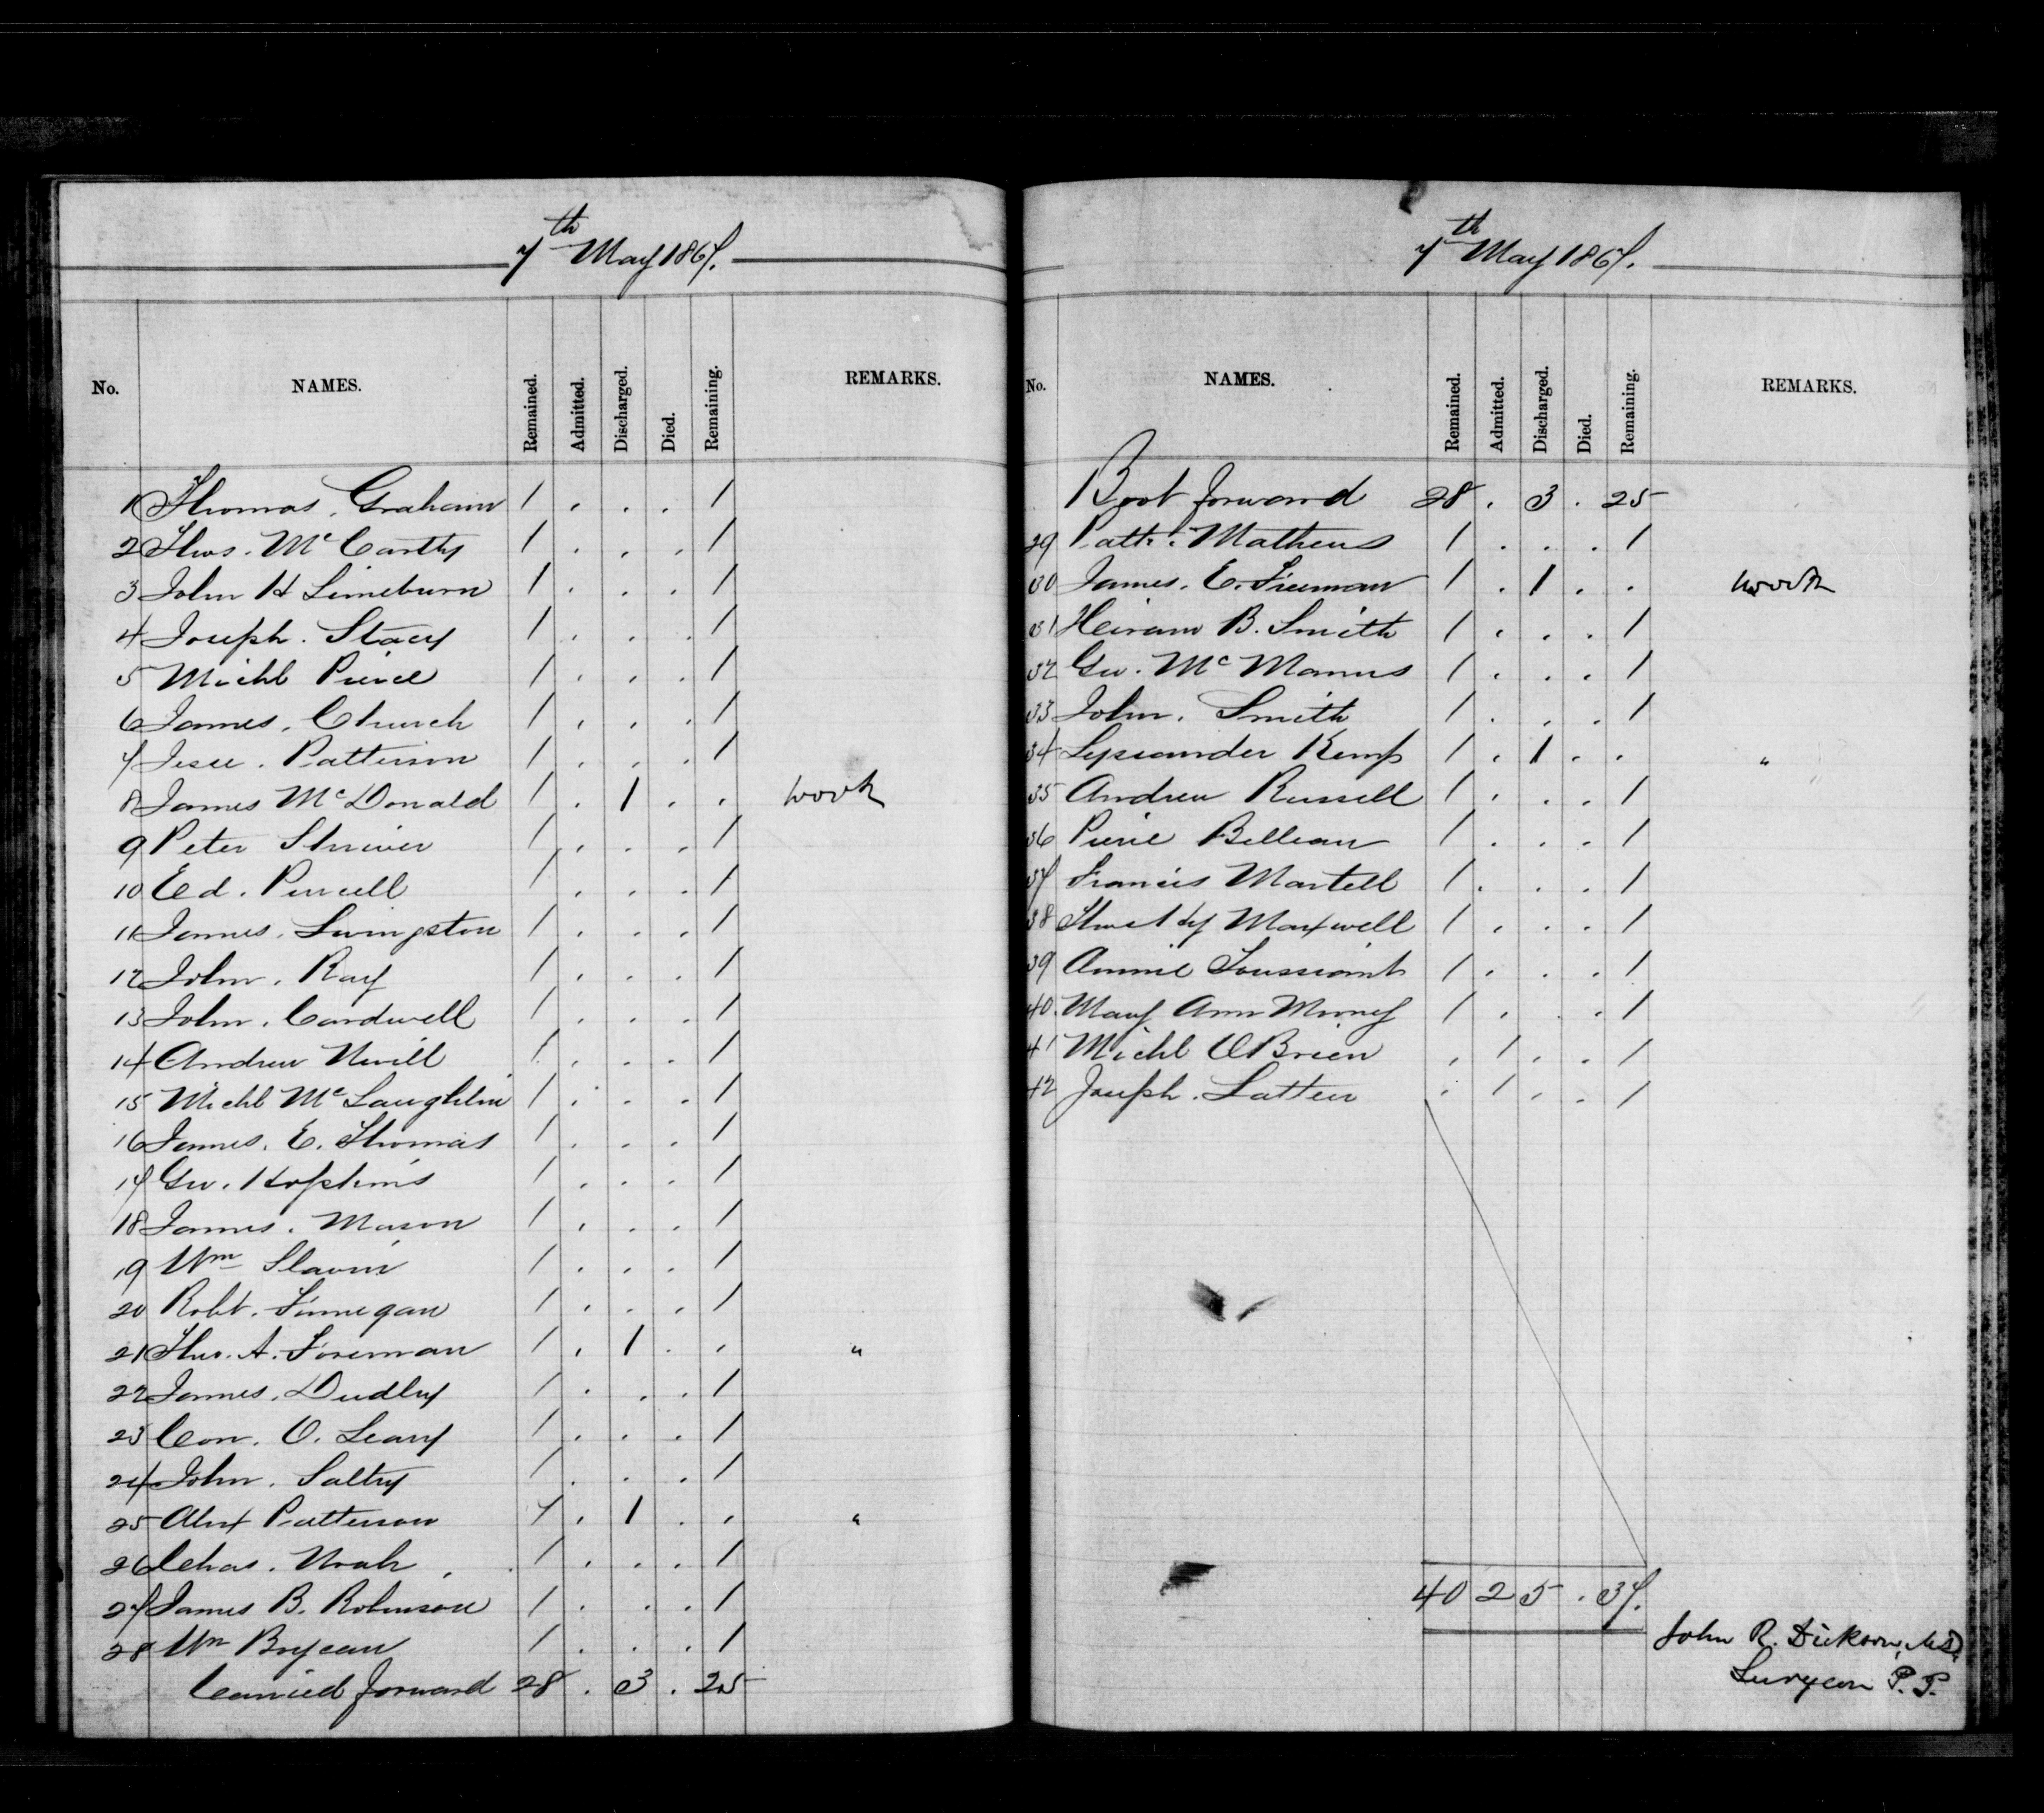 7th May 1867.
No. NAMES. Remained. Admitted. Discharged. Died. Remaining. REMARKS.
1 Thomas. Graham 1 . . . 1
2 Thos. Mc Carthy 1 . . . 1
3 John H Limeburn 1 . . . 1
4 Joseph. Stacy 1 . . . 1
5 Michl Pierce 1 . . . 1
6 James. Church 1 . . . 1
7 Jesse. Patterson 1 . . . 1
8 James Mc Donald 1 . 1 . . work
9 Peter 1 . . . 1
10 Ed. Purcell 1 . . . 1
11 James. Livingston 1 . . . 1
12 John. Ray 1 . . . 1
13 John. Cardwell 1 . . . 1
14 Andrew Nevill 1 . . . 1
15 Michl Mc Laughlin 1 . . . 1
16 James. E. Thomas 1 . . . 1
17 Geo. Hopkins 1 . . . 1
18 James. Mason 1 . . . 1
19 Wm Slavin 1 . . . 1
20 Robt. Finnegan 1 . . . 1
21 Thos. A. Foreman 1 . 1 . . "
22 James. Dudley 1 . . . 1
23 Con. O. Leary 1 . . . 1
24 John. Saltry 1 . . . 1
25 Alex Patterson 1 . 1 . . "
26 Chas. 1 . . . 1
27 James B. Robinson 1 . . . 1
28 Wm 1 . . . 1
Carried forward 28 . 3 . 25
7th May 1867.
No. NAMES. Remained. Admitted. Discharged. Died. Remaining. REMARKS.
Brot forward 28 . 3 . 25
29 Patk. Mathews 1 . . . 1
30 James. E. Freeman 1 . 1 . . work
31 Heiram B. Smith 1 . . . 1
32 Geo. Mc Manus 1 . . . 1
33 John. Smith 1 . . . 1
34 Lysander Kemp 1 . 1 . . "
35 Andrew Russell 1 . . . 1
36 Pierre Belleau 1 . . . 1
37 Francis Martell 1 . . . 1
38 Maxwell 1 . . . 1
39 Annie Toussaint 1 . . . 1
40. Mary Ann Mooney 1 . . . 1
41 Michl OBrien . 1 . . 1
42 Joseph. Latten . 1 . . 1
40 2 5 . 37.
John R. Dickson, MD.
Surgeon P. P.